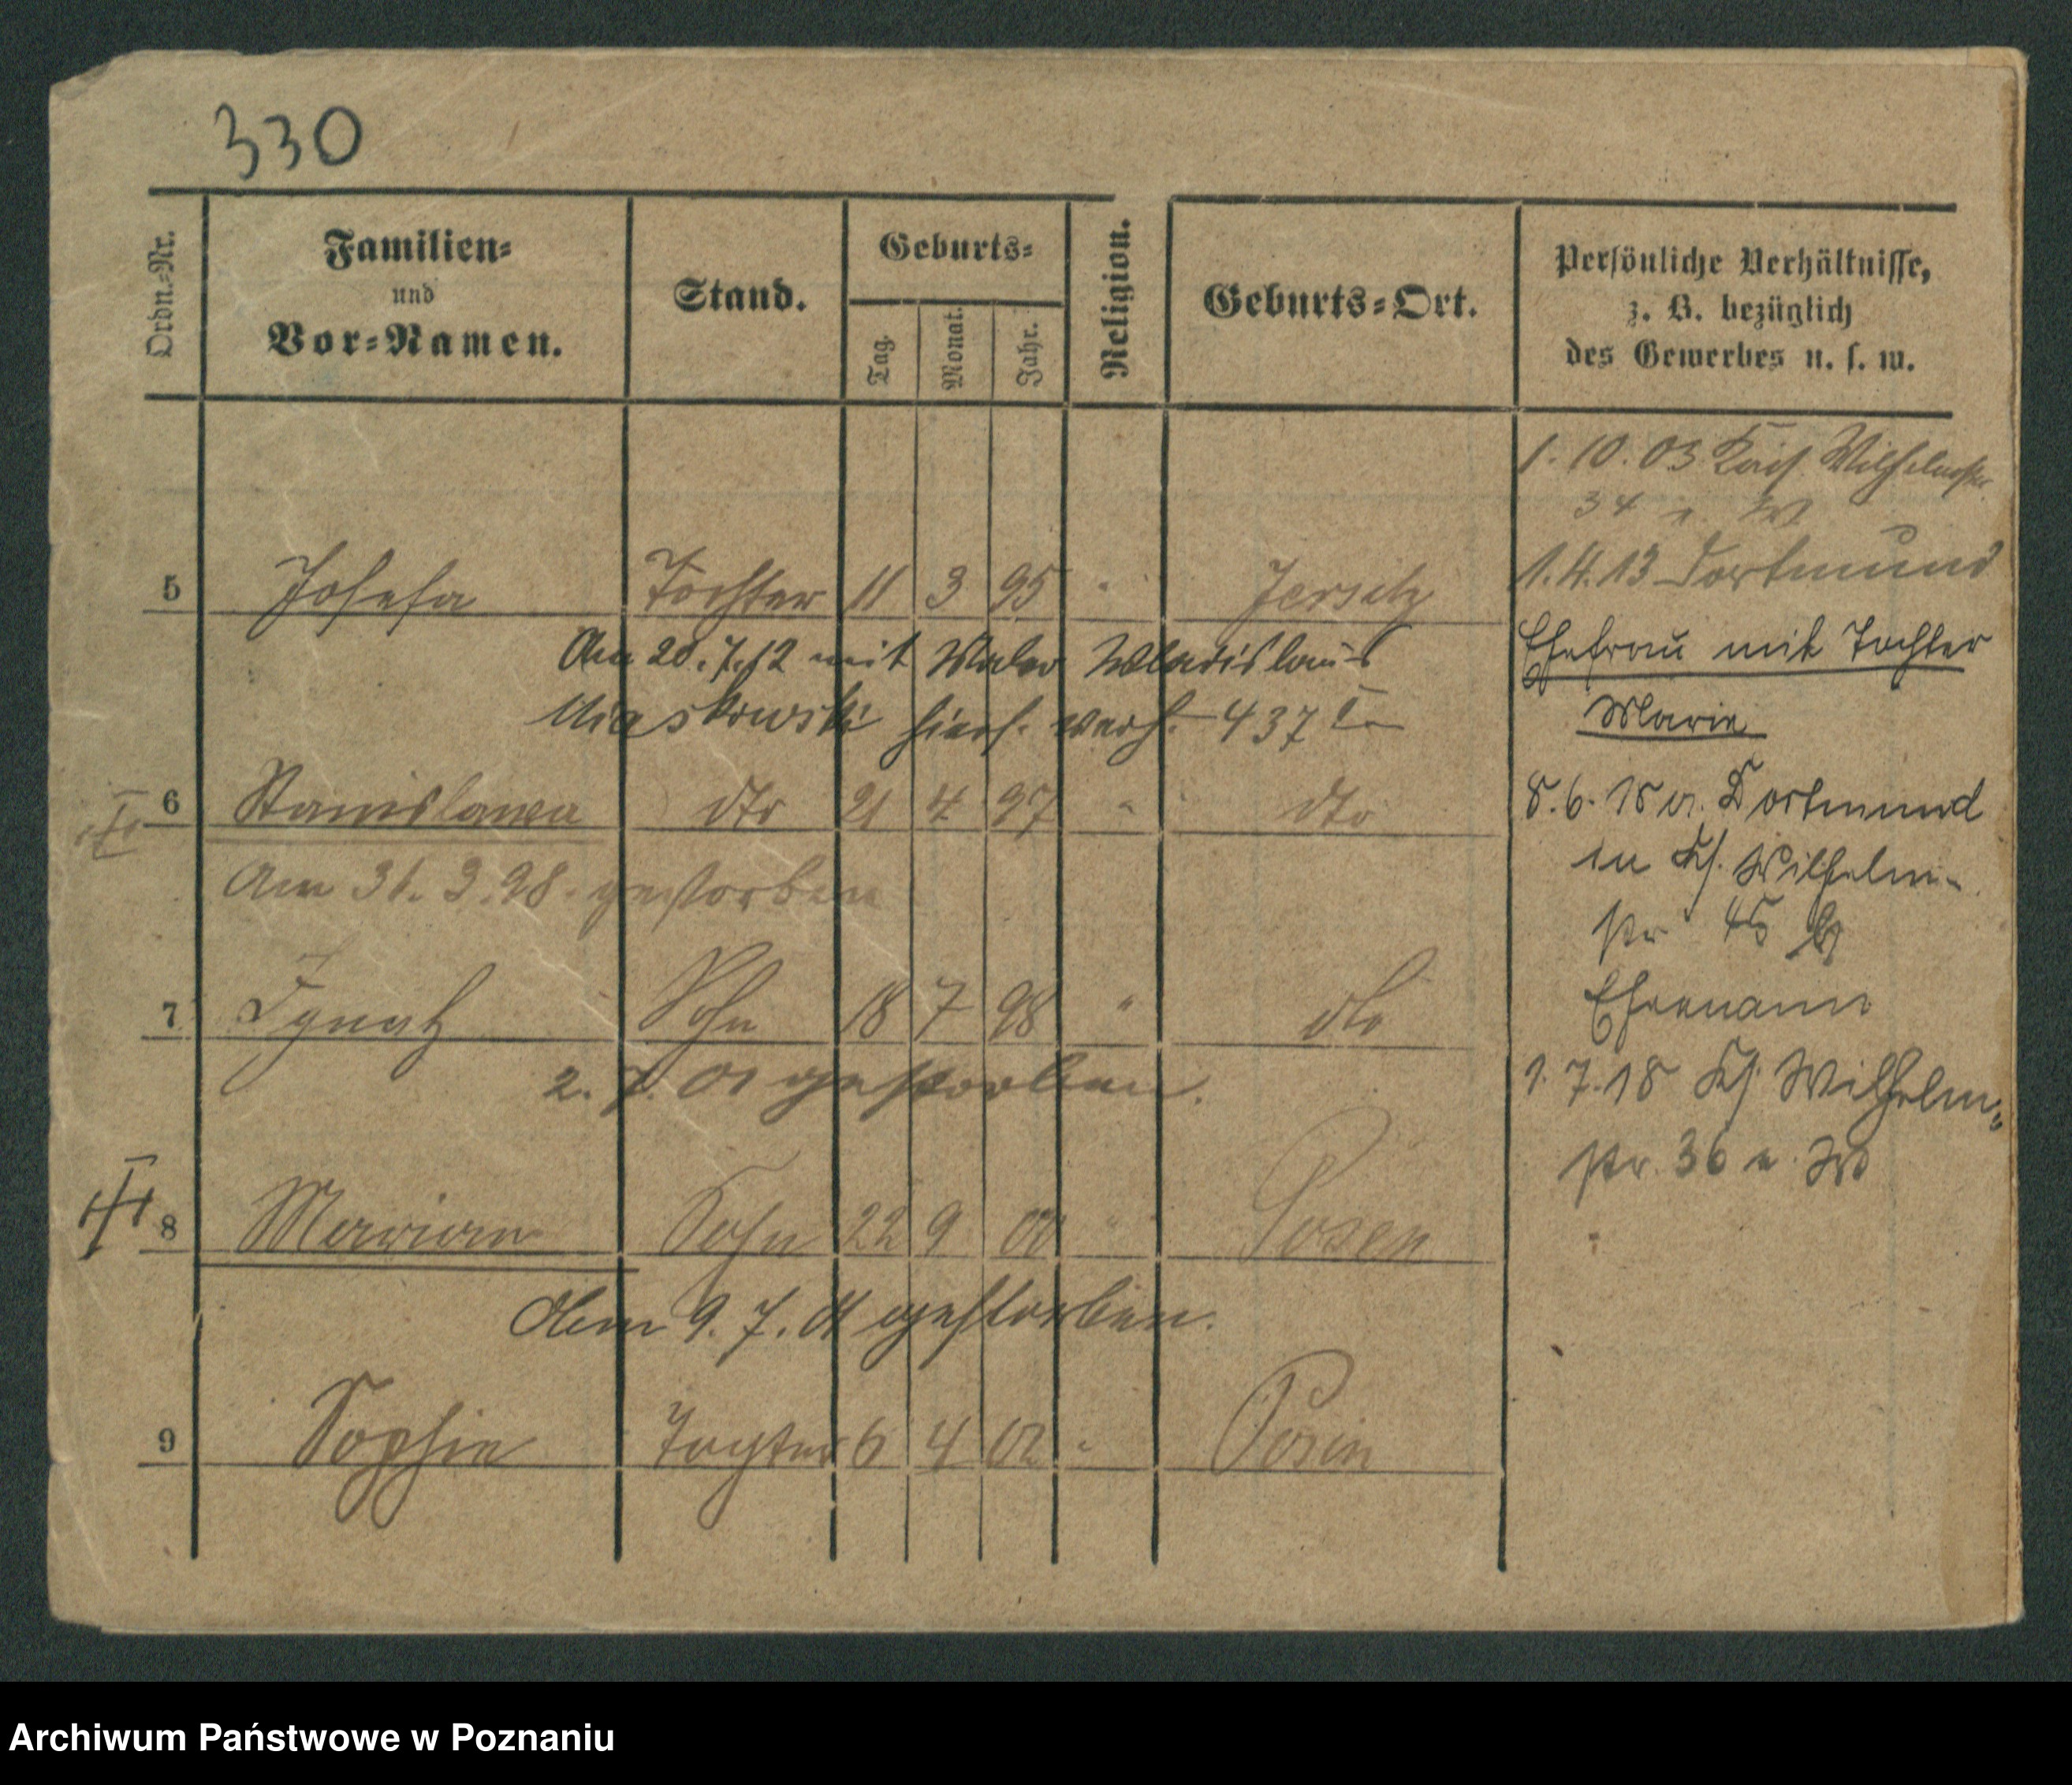 330
Ordn.-Nr.
Familien-
und
Vor-Namen.
Stand.
Geburts-
Tag.
Monat.
Jahr.
Religion.
Geburts-Ort.
Persönliche Verhältnisse,
z. B. bezüglich
des Gewerbes u. s. w.
1. 10. 03 Kais. Wilhelmstr.
34 W
5 Josefa Tochter 11 3 95 " Jersitz
1.4.13 Dortmund
Am 20.7.12 mit Maler Wladislaus
Miaskowski hiers. verh. 437
Ehefrau mit Tochter
Marie
6 Stanislawa dto 21 4 97 " dto
Am 31. 3. 98. gestorben
8.6.18 v. Dortmund
in Ks. Wilhelm-
str 45
7 Ignatz Sohn 18 7 98 " dto
2. 7. 01 gestorben.
Ehemann
1.7.18 Ks. Wilhelm-
str. 36
8 Marian Sohn 22 9 00 " Posen
Am 9. 7. 01 gestorben.
9 Sophie Tochter 6 4 02 " Posen
Archiwum Państwowe w Poznaniu